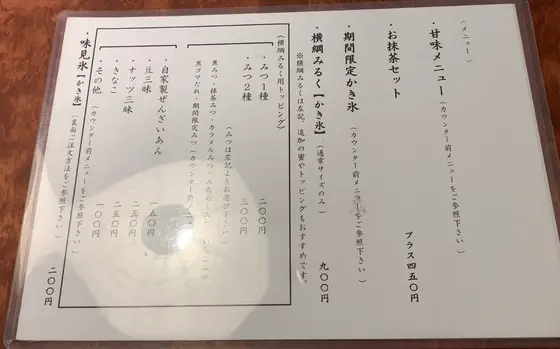 〈メニュー〉
・甘味メニュー（カウンター前メニューをご参照下さい）
・お抹茶セット プラス四五〇円
・期間限定かき氷（カウンター前メニューをご参照下さい）
・横綱みるく【かき氷】（通常サイズのみ） 九〇〇円
※横綱みるくは左記、追加の蜜やトッピングもおすすめです。
〈横綱みるく用トッピング〉
・みつ1種 二〇〇円
・みつ2種 三〇〇円
（みつは左記よりお選び下さい）
黒みつ・抹茶みつ・カラメルみつ・みたらし
黒ゴマだれ・期間限定みつ（カウンター前
・自家製ぜんざいあん
・豆三味 一五〇円
・ナッツ三味 二五〇円
・きなこ 一〇〇円
・その他（カウンター前メニューをご参照下さい）
・味見氷【かき氷】（裏面ご注文方法をご参照下さい） 二〇〇円